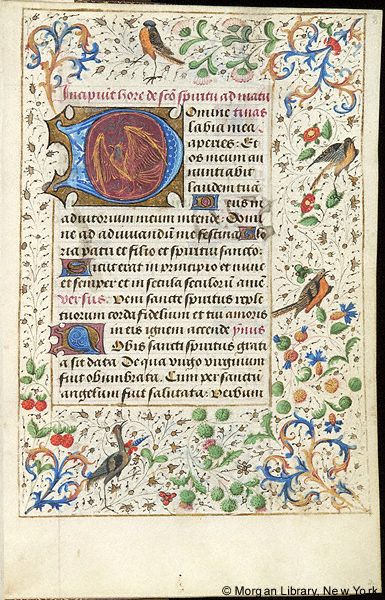 Incipiunt hore de sco spiritu ad matu
Domine tinas
labia mea
aperies. Et
os meum an
nuntiabit
laudem tuā
Deus in
adiutorium meum intende. Domi
ne ad adiuvandū me festina. Glo
ria patri et filio et spiritui sancto.
Sicut erat in principio et nunc
et semper et in secula seculorū amē
versus. Veni sancte spiritus reple
tuorum corda fidelium et tui amoris
in eis ignem accende ymnus
Nobis sancti spiritus grati
a sit data. De qua virgo virginum
fuit obumbrata. Cum per sanctū
angelum fuit salutata. Verbum
© Morgan Library, New York